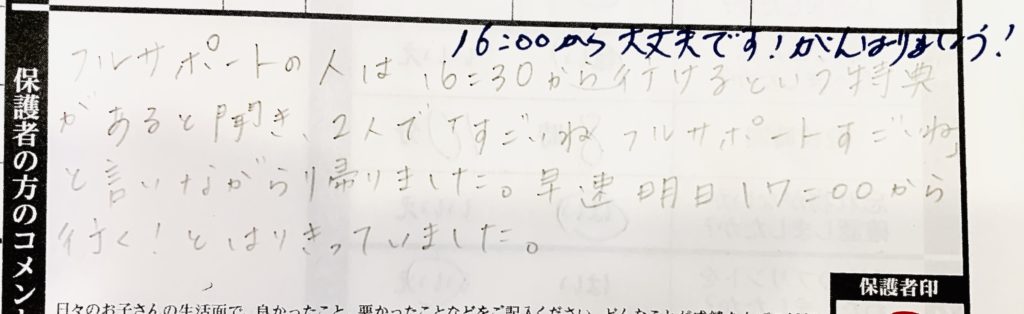 16:00から大丈夫です!がんばりましょう!
フルサポートの人は16:30から行けるという特典
があると聞き、2人で「すごいね フルサポートすごいね」
と言いながら帰りました。早速明日17:00から
行く!とはりきっていました。
保護者の方のコメント
保護者印
日々のお子さんの生活面で、良かったこと、悪かったことなどをご記入ください。どんなことが